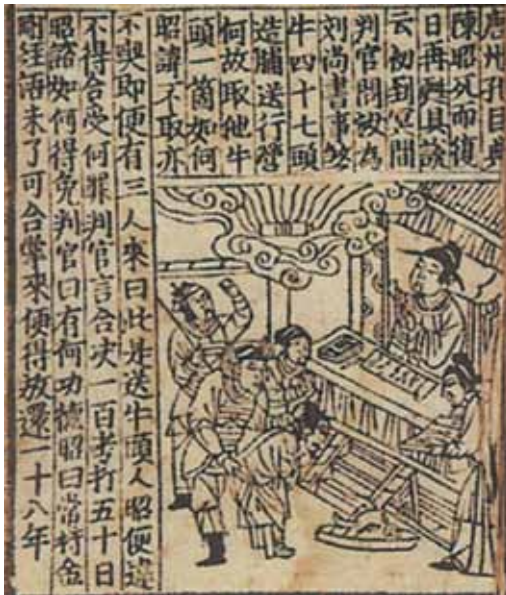 唐州孔目典
陳昭死而復
日再甦具談
云初到冥間
判官問詖為
刘尚書事煞
牛四十七頭
造脯送行營
何故取他牛
頭一箇如何
昭諱不取亦
不喫即便有三人來曰此是送牛頭人昭便違
不得合受何罪判官言合决一百考打五十日
昭諮如何得免判官曰有何功德昭曰常持金
剛經語未了可合擎來便得放還一十八年